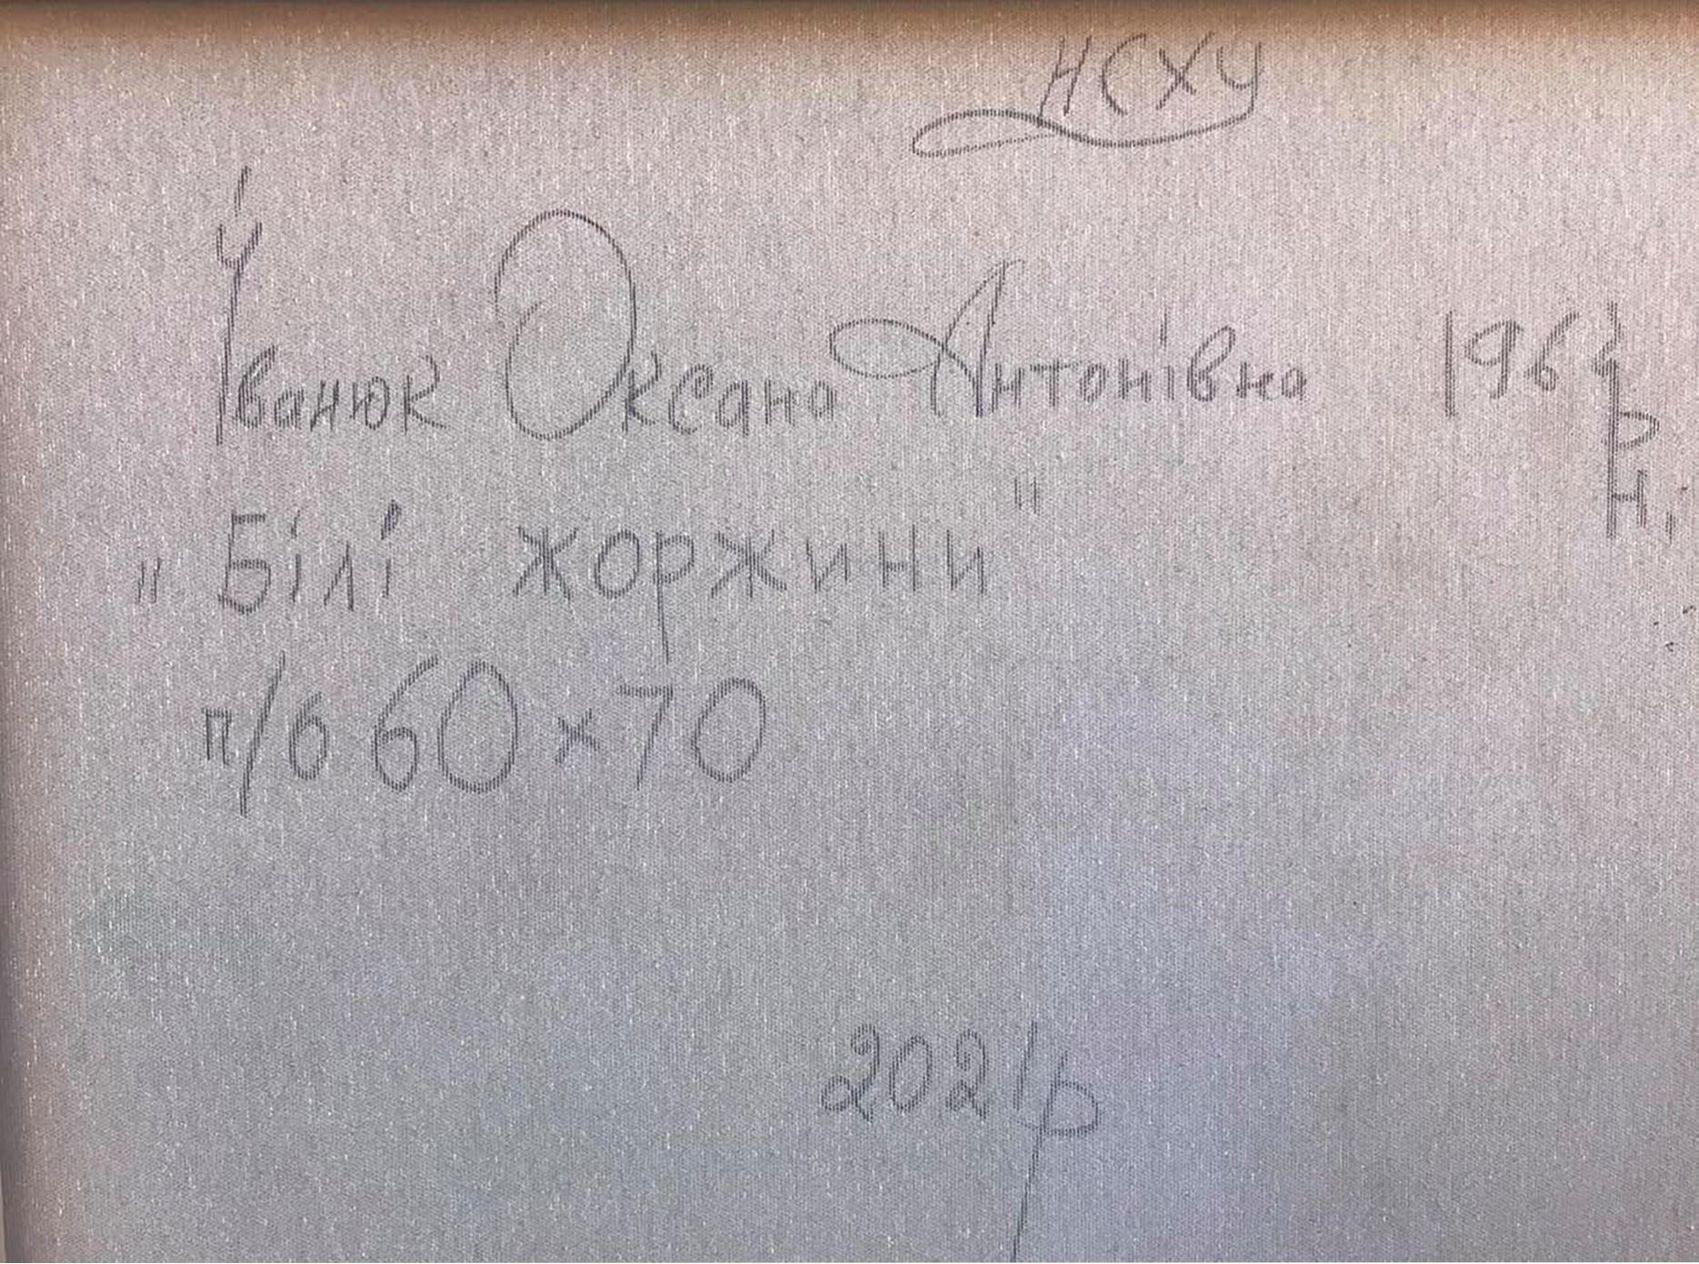 НСХУ
Іванюк Оксана Антонівна 196
р
н.
"Білі жоржини"
п/о 60×70
2021р